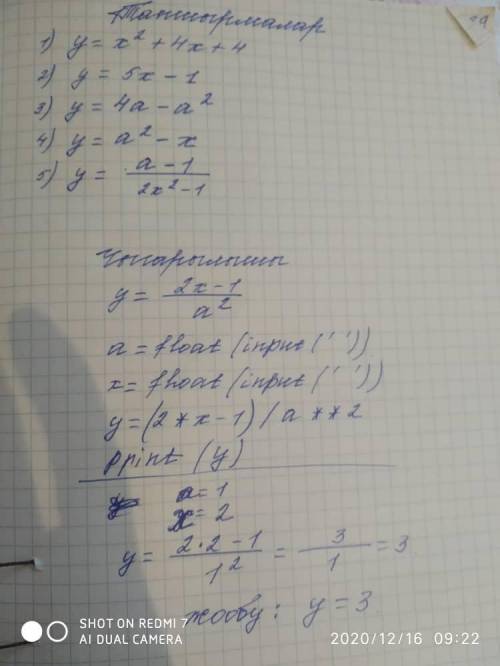 19
Тапшырмалар
1) y = x² + 4x + 4
2) y = 5x - 1
3) y = 4a - a²
4) y = a² - x
5) y = (a - 1) / (2x² - 1)
Чыгарылышы
y = (2x - 1) / a²
a = float (input (' '))
x = float (input (' '))
y = (2 * x - 1) / a ** 2
print (y)
a = 1
x = 2
y = (2 · 2 - 1) / 1² = 3 / 1 = 3
жообу: y = 3
SHOT ON REDMI 7
AI DUAL CAMERA
2020/12/16 09:22